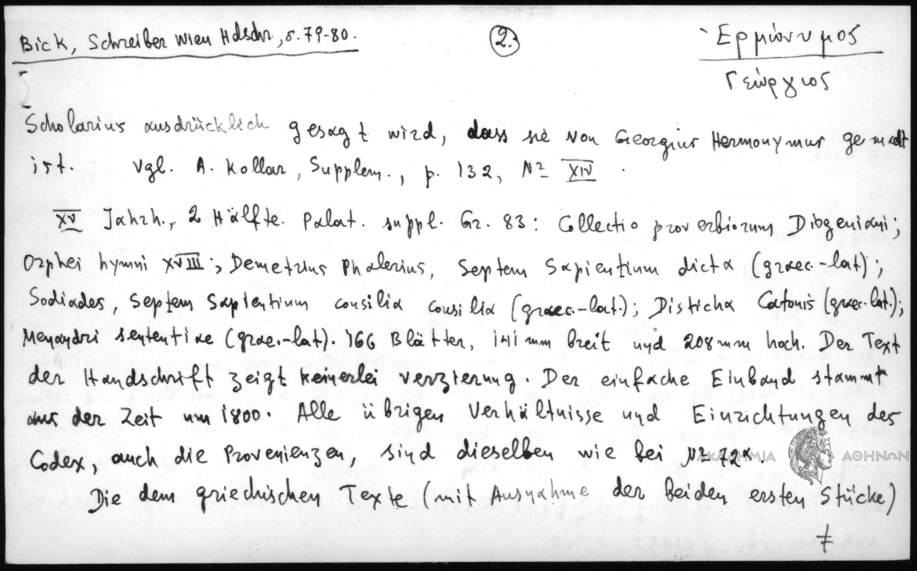 Bick, Schreiber Wien Hdschr, S. 79-80.
2.
Ἑρμώνυμος
Γεώργιος
Scholarius ausdrücklich gesagt wird, dass sie von Georgius Hermonymus gemacht
ist. Vgl. A. Kollar, Supplem., p. 132, Nº XIV.
XV Jahrh., 2 Hälfte. Palat. suppl. Gr. 83: Collectio proverbiorum Diogeniani;
Orphei hymni XVIII; Demetrius Phalerius, Septem Sapientium dicta (graec.-lat);
Sodiades, Septem Sapientium consilia consilia (graec.-lat); Disticha Catonis (graec.lat.);
Menandri sententiae (graec.-lat). 166 Blätter, 141 mm breit und 208 mm hoch. Der Text
der Handschrift zeigt keinerlei verzierung. Der einfache Einband stammt
aus der Zeit um 1800. Alle übrigen Verhältnisse und Einrichtungen des
Codex, auch die Provenienzen, sind dieselben wie bei Nº 72*.
ΑΚΑΔΗΜΙΑ ΑΘΗΝΩΝ
Die dem griechischen Texte (mit Ausnahme der beiden ersten Stücke)
≠